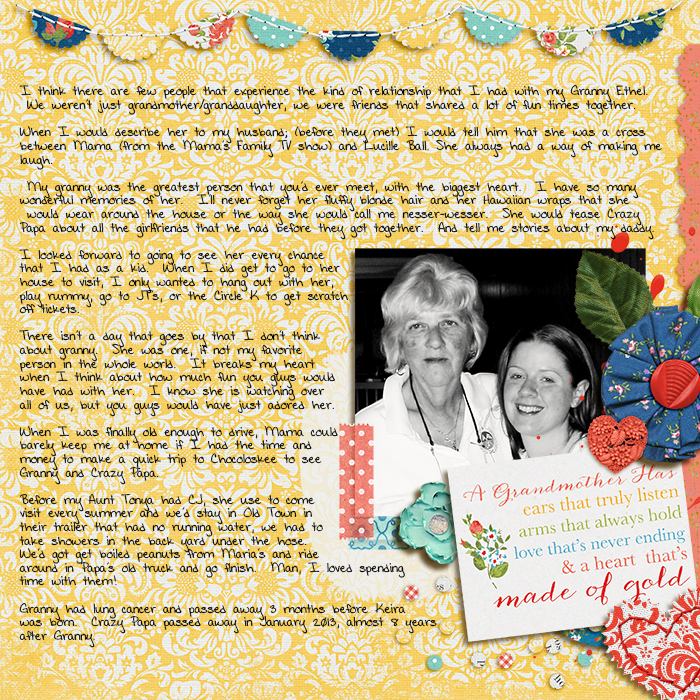 I think there are few people that experience the kind of relationship that I had with my Granny Ethel.
We weren't just grandmother/granddaughter, we were friends that shared a lot of fun times together.
When I would describe her to my husband; (before they met) I would tell him that she was a cross
between Mama (from the Mama's Family TV show) and Lucille Ball. She always had a way of making me
laugh.
My granny was the greatest person that you'd ever meet, with the biggest heart. I have so many
wonderful memories of her. I'll never forget her fluffy blonde hair and her Hawaiian wraps that she
would wear around the house or the way she would call me nesser-wesser. She would tease Crazy
Papa about all the girlfriends that he had before they got together. And tell me stories about my daddy.
I looked forward to going to see her every chance
that I had as a kid. When I did get to go to her
house to visit, I only wanted to hang out with her,
play rummy, go to JT's, or the Circle K to get scratch
off tickets.
There isn't a day that goes by that I don't think
about granny. She was one, if not my favorite
person in the whole world. It breaks my heart
when I think about how much fun you guys would
have had with her. I know she is watching over
all of us, but you guys would have just adored her.
When I was finally old enough to drive, Mama could
barely keep me at home if I had the time and
money to make a quick trip to Chocoloskee to see
Granny and Crazy Papa.
Before my Aunt Tonya had CJ, she use to come
visit every summer and we'd stay in Old Town in
their trailer that had no running water, we had to
take showers in the back yard under the hose.
We'd got get boiled peanuts from Maria's and ride
around in Papa's old truck and go finish. Man, I loved spending
time with them!
Granny had lung cancer and passed away 3 months before Keira
was born. Crazy Papa passed away in January 2013, almost 8 years
after Granny.
A Grandmother Has
ears that truly listen
arms that always hold
love that's never ending
& a heart that's
made of gold